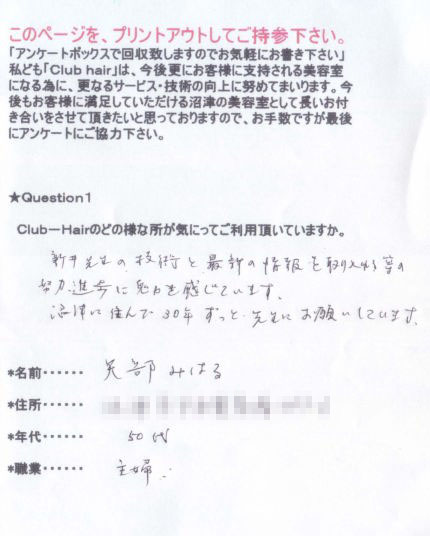 このページを、プリントアウトしてご持参下さい。
「アンケートボックスで回収致しますのでお気軽にお書き下さい」
私ども「Club hair」は、今後更にお客様に支持される美容室
になる為に、更なるサービス・技術の向上に努めてまいります。今
後もお客様に満足していただける沼津の美容室として長いお付
き合いをさせて頂きたいと思っておりますので、お手数ですが最後
にアンケートにご協力下さい。
★Question1
Club－Hairのどの様な所が気にってご利用頂いていますか。
新井先生の技術と最新の情報を取り入れる等の
努力進歩に魅力を感じています。
沼津に住んで30年ずっと先生にお願いしています。
*名前⋯⋯ 矢部みはる
*住所⋯⋯
*年代⋯⋯ 50代
*職業⋯⋯ 主婦